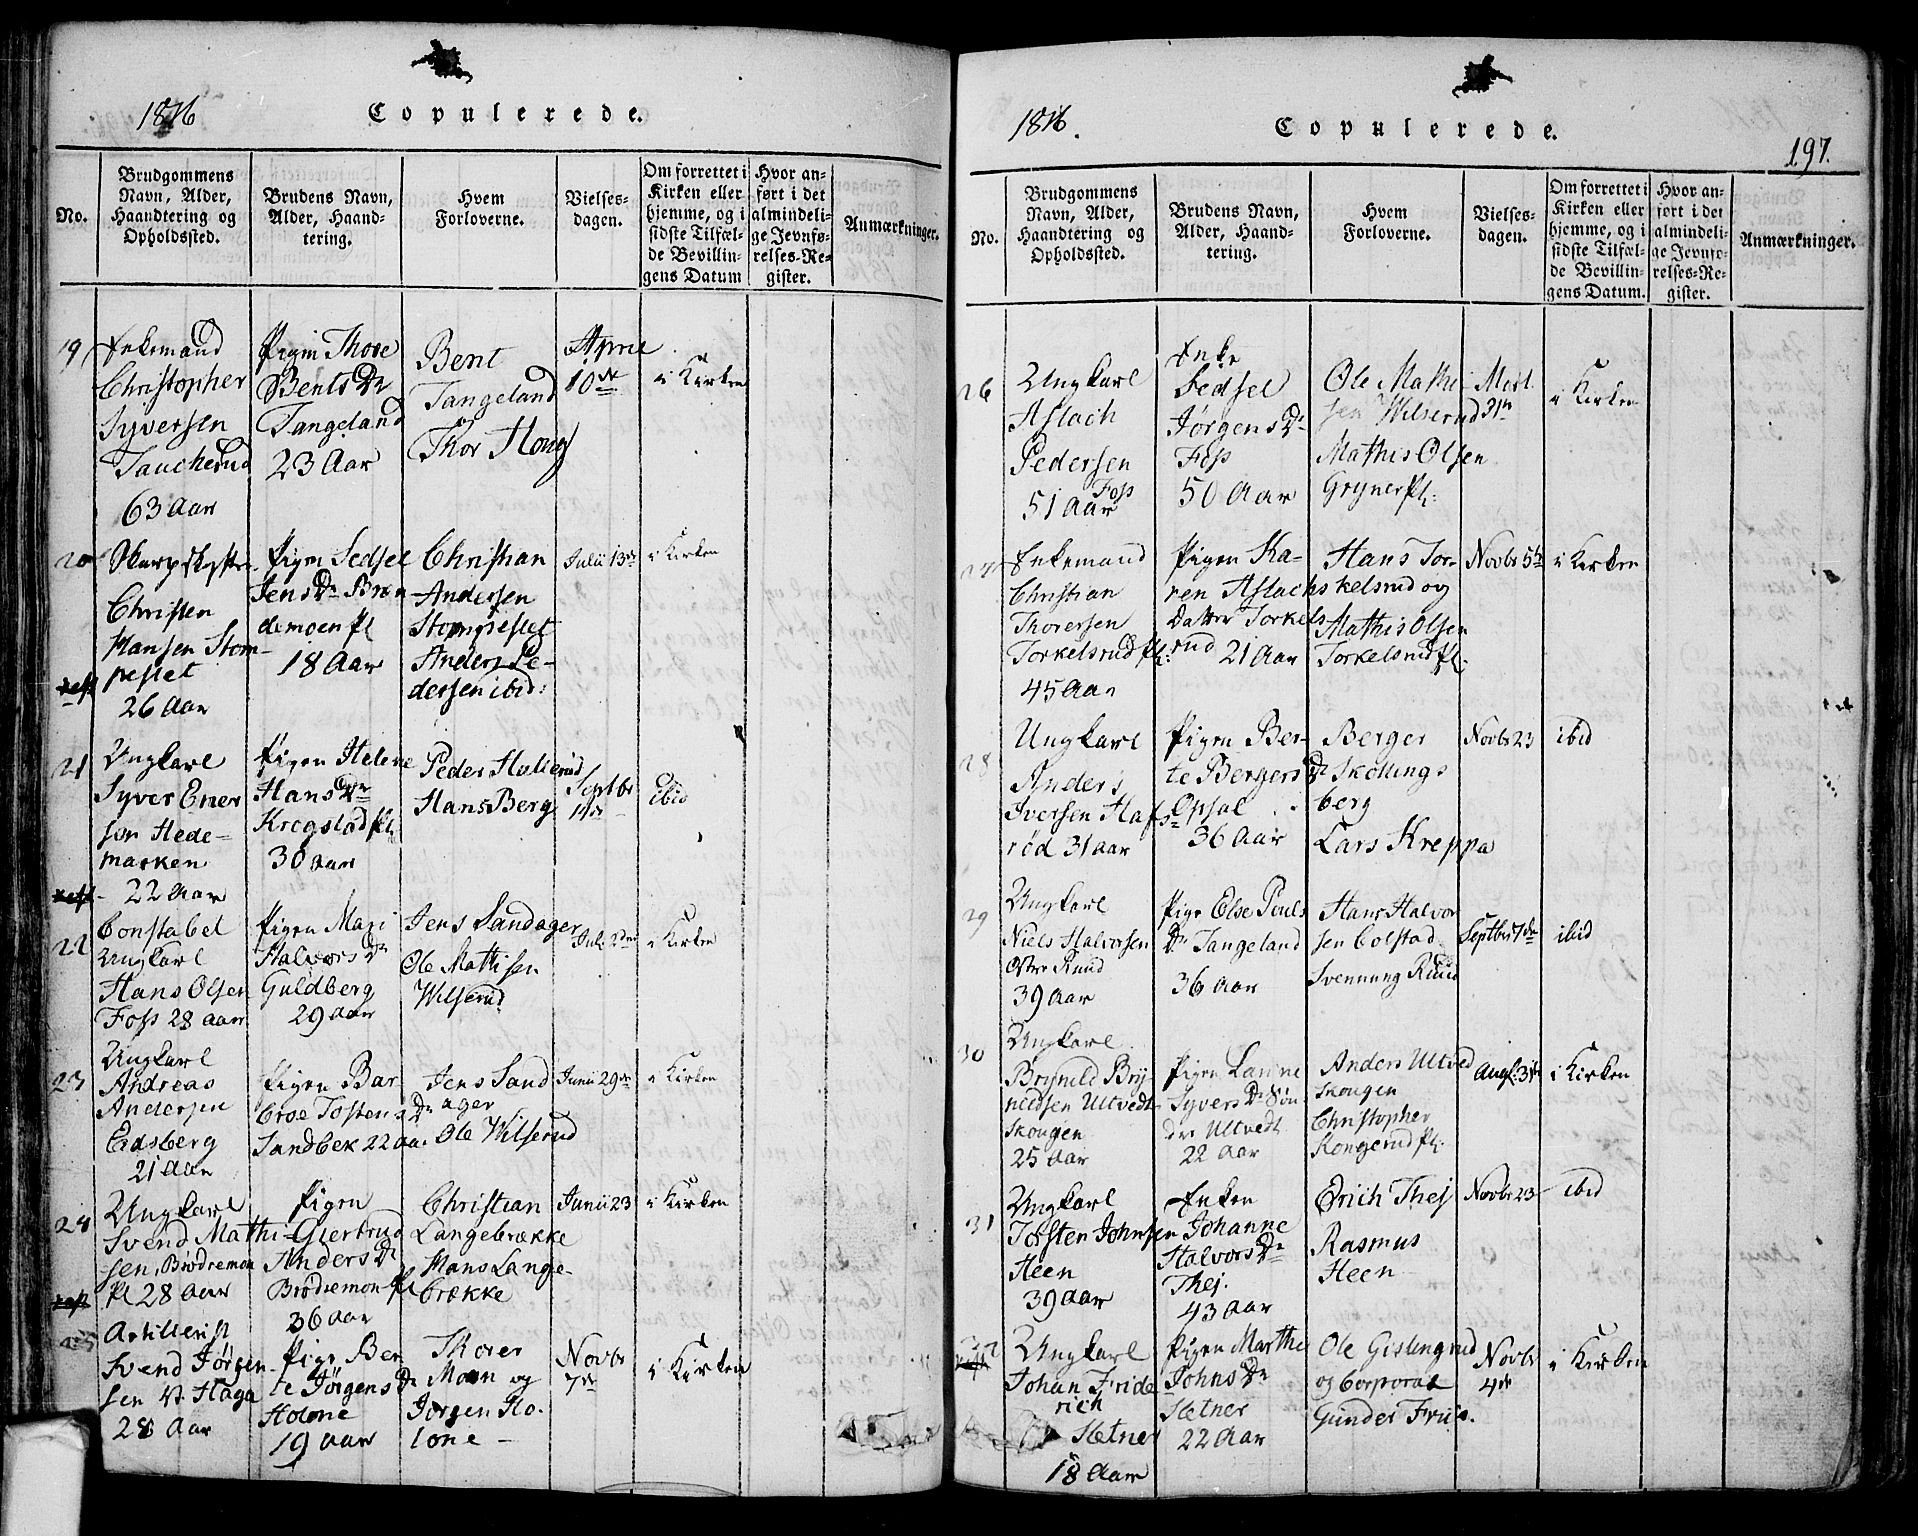 1816
Copulerede.
No.
Brudgommens
Navn, Alder,
Haandtering og
Opholdssted.
Brudens Navn,
Alder, Haand-
tering.
Hvem
Forloverne.
Vielses-
dagen.
Om forrettet i
Kirken eller
hjemme, og i
sidste Tilfæl-
de Bevillin-
gens Datum
Hvor an-
ført i det
almindeli-
ge Jevnfø-
relses-Re-
gister.
Anmærkninger.
19
Enkemand
Christopher
Syversen
Taucherud
63 Aar
Pigen Thore
Bents Dr
Tangeland
23 Aar
Bent
Tangeland
og
Thor Houg
April
10de
i Kirken
20
Skarpskytte
Christen
Hansen Stom-
pestet
26 Aar
Pigen Sedsel
Jens Dr Bræn
demoen Pl
18 Aar
Christian
Andersen
Stompestet
Anders Pe-
dersen ibid:
Julii 13de
i Kirken
21
Ungkarl
Syver Ener
sen Hede-
marken
22 Aar
Pigen Helene
Hans Dr
Kregstad Pl:
30 Aar
Peder Hallerud
Hans Berg
Septbr
14de
ibid
22
Constabel
Ungkarl
Hans Olsen
Foss 28 aar
Pigen Mari
Halvors Dr
Guldberg
29 Aar
Jens Sandager
Ole Mathisen
Wilserud
i Kirken
23
Ungkarl
Andreas
Andersen
Eidsberg
21 Aar
Pigen Bar
broe Tostens Dr
Sandbek 22 aa.
Jens Sand
ager
Ole Wilserud
Junii 29de
i Kirken
24
Ungkarl
Svend Mathi-
sen, Brødremon
Pl 28 Aar
Pigen
Giertrud
Anders Dr
Brødremon Pl
36 Aar
Christian
Langebrække
Hans Lange-
brække
Junii 23
i Kirken
25
Artillerist
Svend Jørgen
sen V. Haga
28 Aar
Pige Ber
te Jørgens Dr
Holone
19 aar
Thorer
Moen og
Jørgen Ho-
lone
Novbr
7de
i Kirken
1816.
Copulerede.
197.
No.
Brudgommens
Navn, Alder,
Haandtering og
Opholdssted.
Brudens Navn,
Alder, Haand-
tering.
Hvem
Forloverne.
Vielses-
dagen.
Om forrettet i
Kirken eller
hjemme, og i
sidste Tilfæl-
de Bevillin-
gens Datum.
Hvor an-
ført i det
almindeli-
ge Jevnfø-
relses-Re-
gister.
Anmærkninger.
26
Ungkarl
Aslach
Pedersen
Foss
51 Aar
Enke
Sedsel
Jørgens Dr
Foss
50 Aar
Ole Mathi-
sen Wilserud
Mathis Olsen
Gryner Pl:
31te
i Kirken
27
Enkemand
Christian
Thorersen
Torkelsrud Pl:
45 Aar
Pigen Ka-
ren Aslachs
Datter Torkels
rud 21 Aar
Hans Tor-
kelsrud og
Mathis Olsen
Torkelsrud Pl:
Novbr 5te
i Kirken
28
Ungkarl
Anders
Iversen Hafs-
rød 31 Aar
Pigen Ber-
te Bergers Dr
Opsal
36 Aar
Berger
Skollings
berg
Lars Kreppa
Novbr 23
ibid
29
Ungkarl
Niels Halvorsen
Ostre Ruud
39 Aar
Pige Else Pouls
Dr Tangeland
36 Aar
Hans Halvor
sen Colstad
Svennung Ruud
Septbr
ibid
30
Ungkarl
Bryneld Bry-
neldsen Ultvedt
Skougen
25 Aar
Pigen Lanne
Syvers Dr Søn
dre Ultvedt
22 Aar
Anders Ultved
Skougen
Christopher
Kongerud Pl:
Aug: 31te
i Kirken
31
Ungkarl
Torsten Johnsen
Heen
39 Aar
Enken
Johanne
Halvors Dr
Thej.
43 Aar
Erich Thej
Rasmus
Heen
Novbr 23
ibid
32
Ungkarl
Johan Fride
rich
Hetner
18 Aar
Pigen Marthe
Johns Dr
Hetner
22 Aar
Ole Gislingrud
og Corporal
Gunder Friis.
Novbr
4de
i Kirken